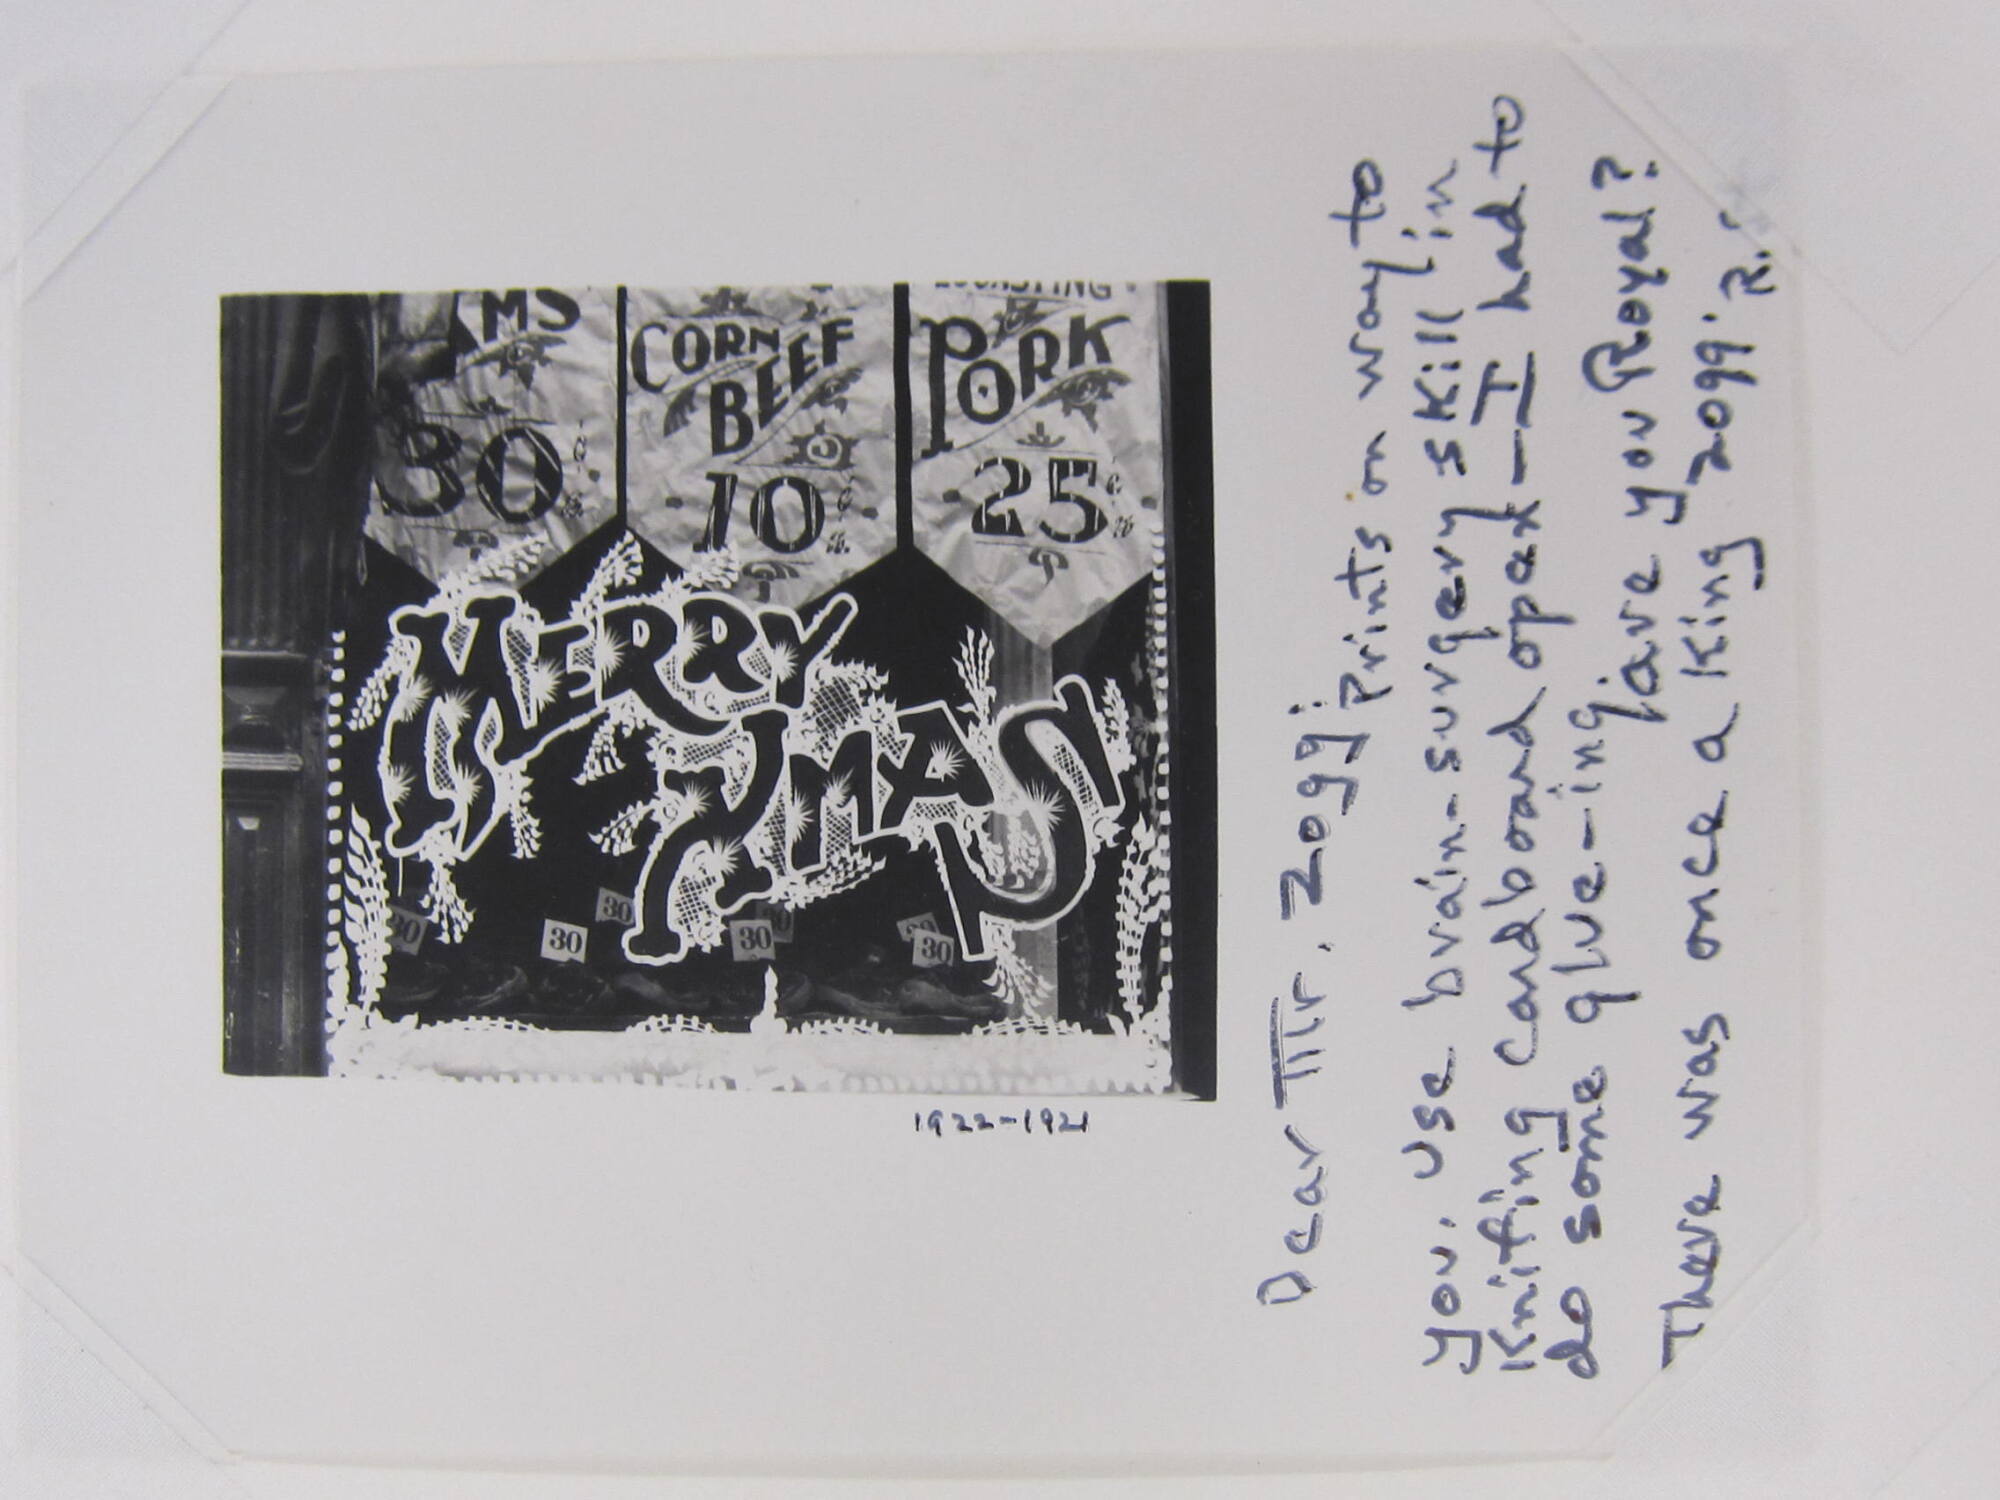 MS
30
CORN
BEEF
10
PORK
25
MERRY
XMAS
30
30
30
30
30
1922-1921
Dear Mr. Zogg: Prints on way to
you. Use brain-surgery skill in
Knifing cardboard open—I had to
do some glue-ing
are you Royal?
There was once a King Zogg. R.